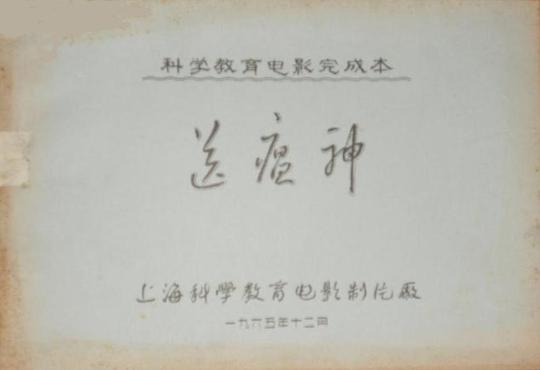 科学教育电影完成本
送瘟神
上海科学教育电影制片厂
一九六五年十二月